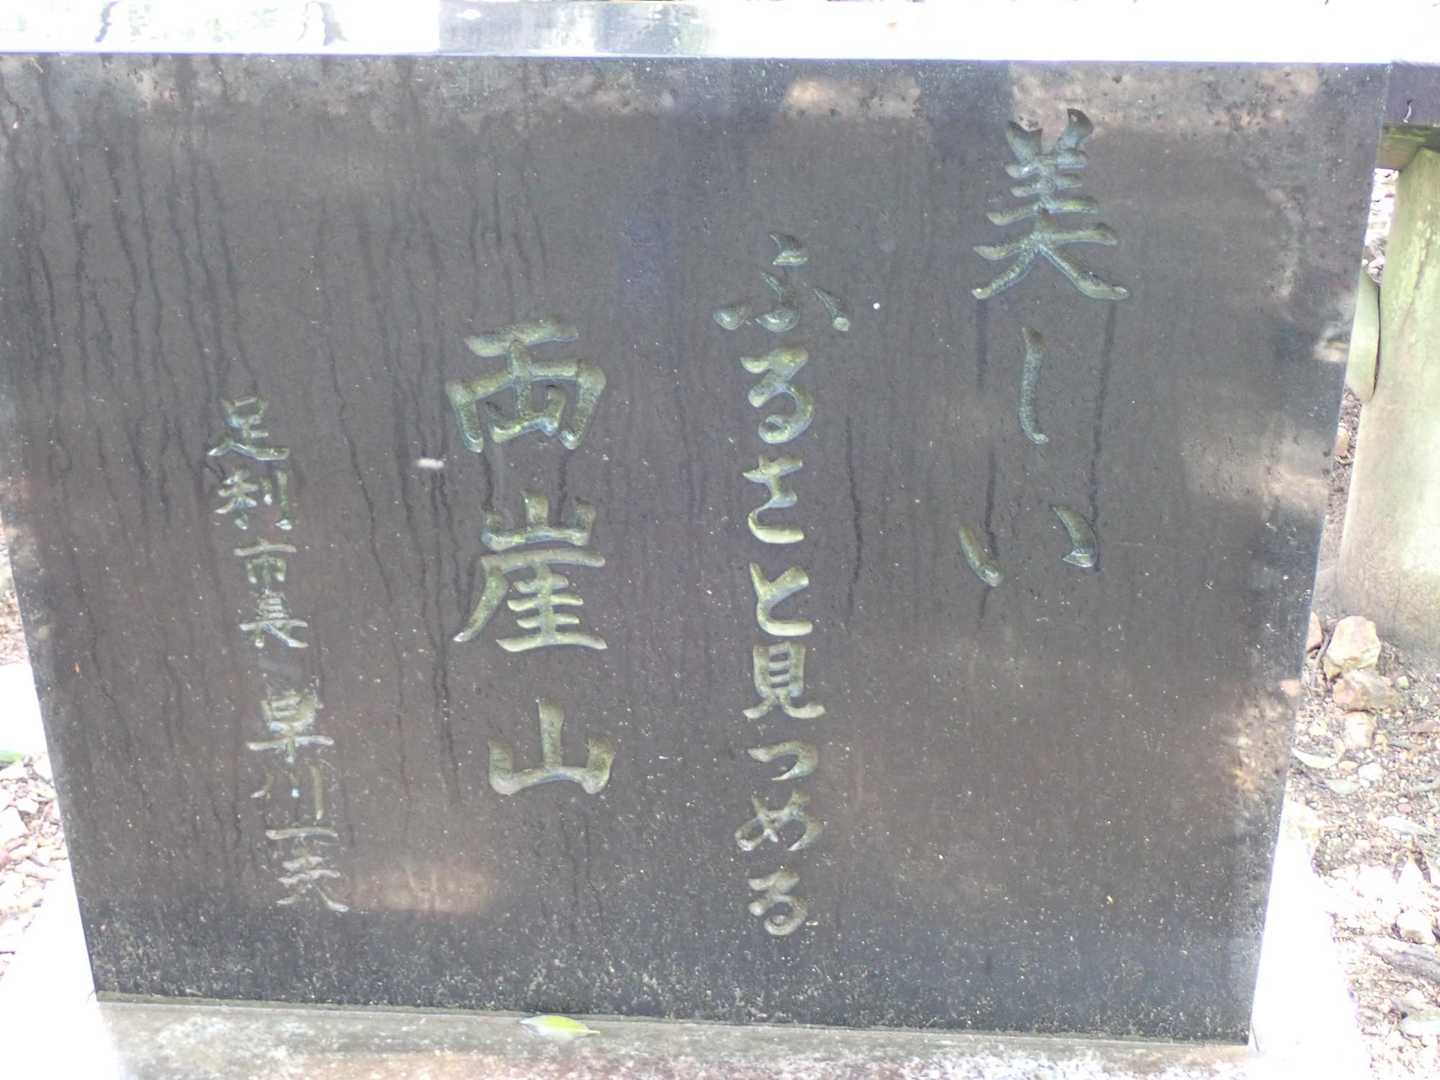 美しい
ふるさと見つめる
両崖山
足利市長 早川一夫